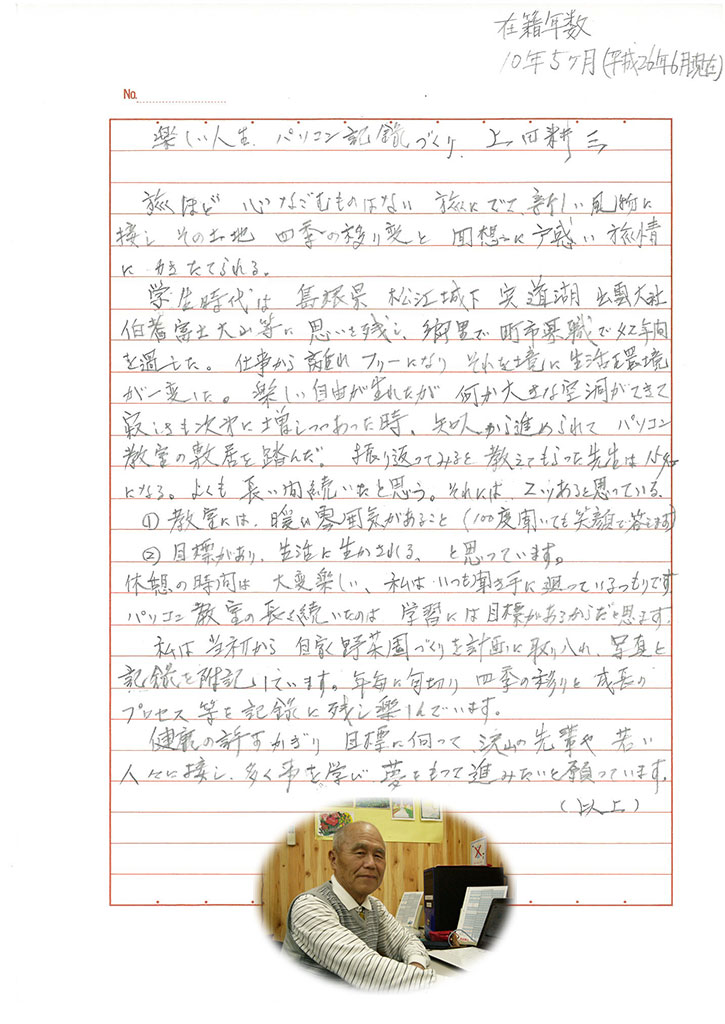 在籍年数
10年5ヶ月(平成26年6月現在)
No.
楽しい人生、パソコン記録づくり、 上田耕三
旅ほど 心なごむものはない 旅にでて、新しい風物に
接し その土地 四季の移り変と 回想に戸惑い 旅情
に かきたてられる。
学生時代は 島根県 松江城下 宍道湖 出雲大社
伯耆富士大山等に 思いを残し、郷里で 町市 職で42年間
を過した。 仕事から離れ フリーになり それを境に生活を環境
が一変した。 楽しい自由が生れたが 何か大きな空洞ができて
寂しさも次第に増しつつあった時、知人から進められて パソコン
教室の敷居を踏んだ。 振り返ってみると 教えてもらった先生は15名
になる。よくも 長い間続いたと思う。それには 二ツあると思っている、
① 教室には、暖い雰囲気があること (100度聞いても笑顔で答えます)
② 目標があり、生活に生かされる、 と思っています。
休憩の時間は 大変楽しい、私は いつも聞き手に廻っているつもりです
パソコン教室の長く続いたのは 学習には目標があるからだと思ます、
私は 当初から 自家野菜園づくりを計画に取り入れ、写真と
記録を附記しています。年毎に句切り 四季の移りと 成長の
プロセス等を記録に残し楽しんでいます。
健康の許すかぎり 目標に向って 沢山の先輩や 若い
人々に接し、多く事を学び 夢をもつて進みたいと願っています。
(以上)